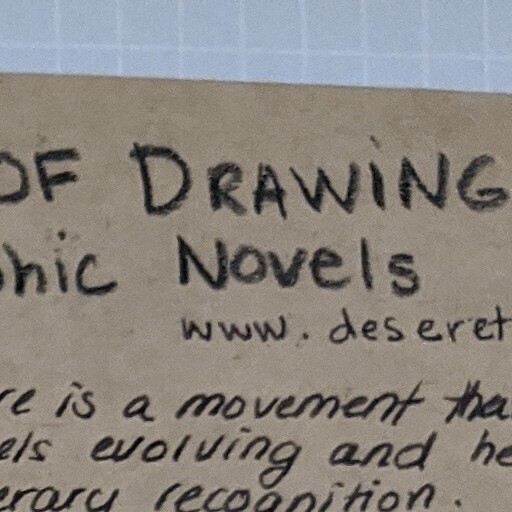 OF DRAWING
hic Novels
www.deseret
re is a movement tha
els evolving and he
erary recognition.